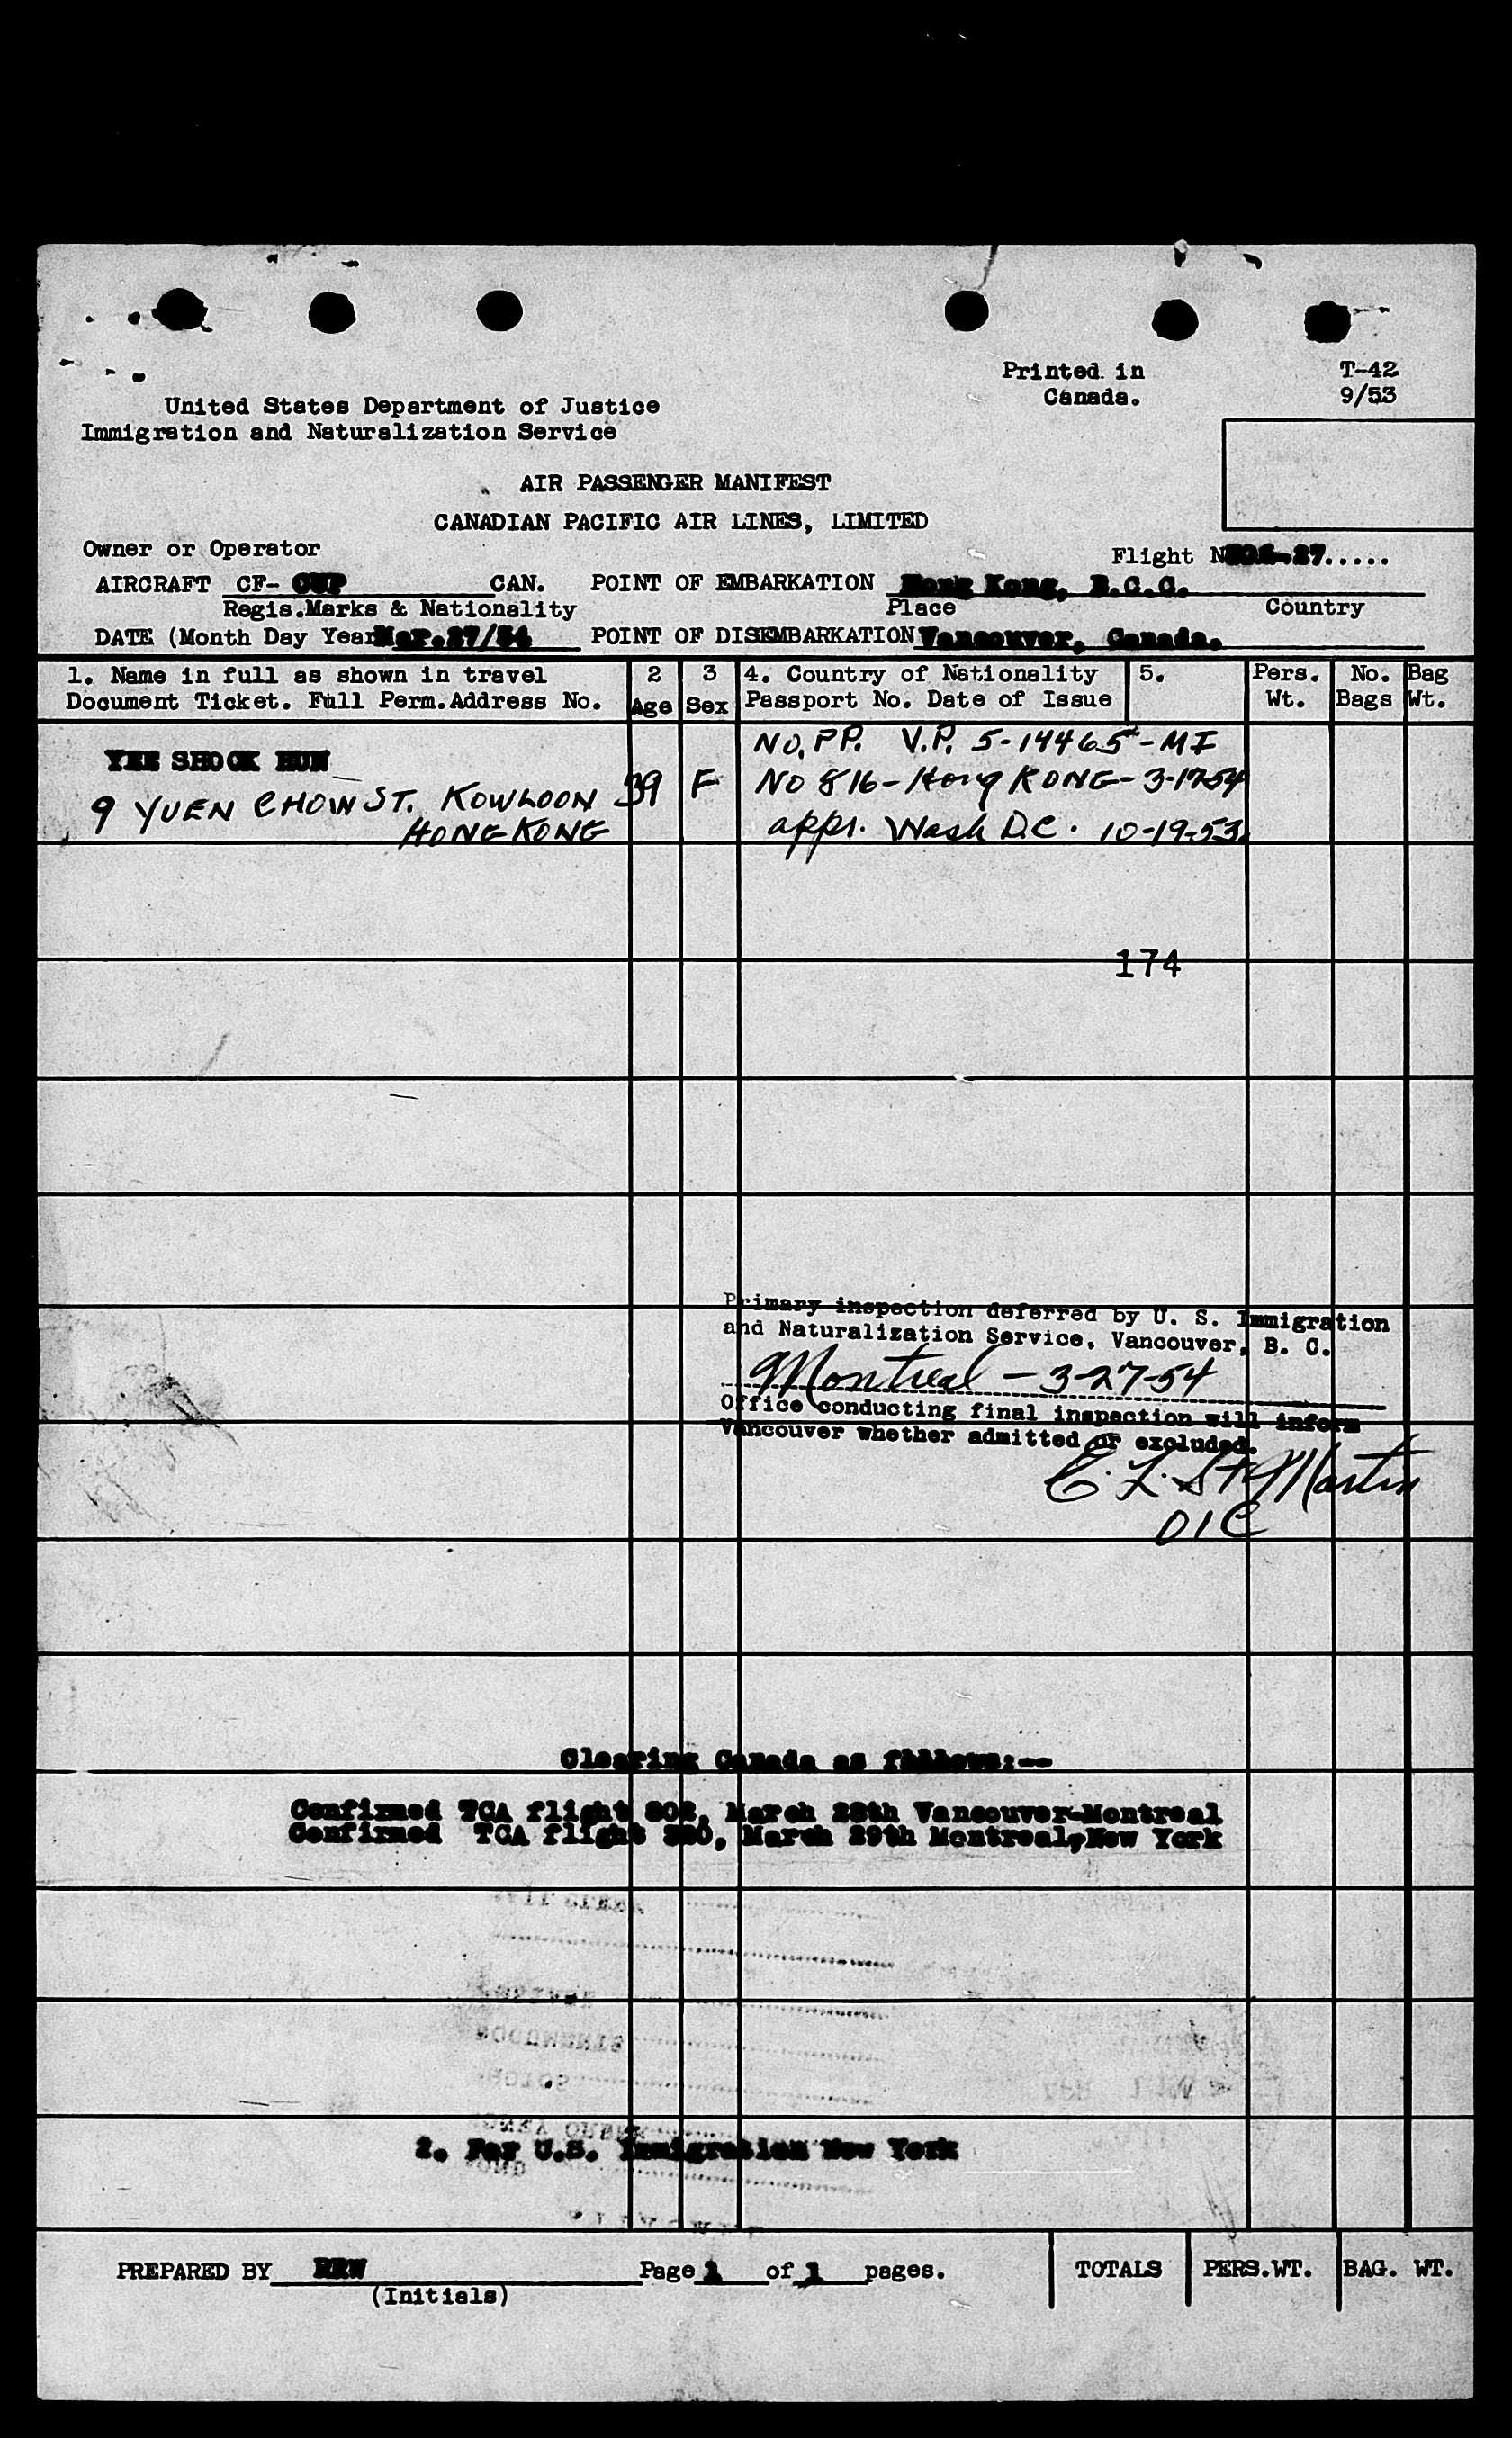 Printed in T-42
Canada. 9/53
United States Department of Justice
Immigration and Naturalization Service
AIR PASSENGER MANIFEST
CANADIAN PACIFIC AIR LINES, LIMITED
Owner or Operator
Flight N 27.....
AIRCRAFT CF- CUP CAN. POINT OF EMBARKATION Hong Kong, B.C.C.
Regis.Marks & Nationality Place Country
DATE (Month Day Year Mar.27/54 POINT OF DISEMBARKATION Vancouver, Canada.
1. Name in full as shown in travel 2 3 4. Country of Nationality 5. Pers. No. Bag
Document Ticket. Full Perm.Address No. Age Sex Passport No. Date of Issue Wt. Bags Wt.
NO. PP. V.P. 5-14465-MI
YEE SHOCK HUN
9 YUEN CHOW ST. KOWLOON 39 F NO 816-Hong KONG-3-17-54
HONG KONG appr. Wash D.C. 10-19-53.
174
Primary inspection deferred by U. S. Immigration
and Naturalization Service, Vancouver, B. C.
Montreal - 3-27-54
Office conducting final inspection will inform
Vancouver whether admitted or excluded.
E. L. St Martin
OIC
Clearing Canada as follows:--
Confirmed TCA flight 802, March 28th Vancouver-Montreal
Confirmed TCA flight March 29th Montreal, New York
2. For U.S. Immigration New York
PREPARED BY RRW Page 1 of 1 pages. TOTALS PERS.WT. BAG. WT.
(Initials)